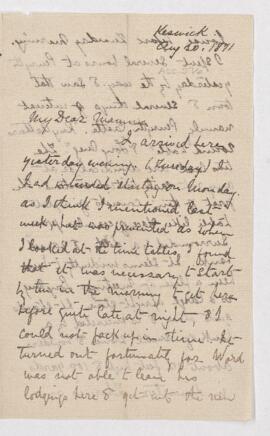 Keswick
Aug 20, 1891
My Dear Mamma
I arrived here
yesterday evening (Tuesday). I
had intended starting on Monday,
as I think I mentioned last
week, but was prevented as when
I looked at the time tables, I found
that it was necessary to start
by ten in the morning to get here
before quite late at night, & I
could not pack up in time. It
turned out fortunately for Ward
was not able to leave his
lodgings here & get into the new